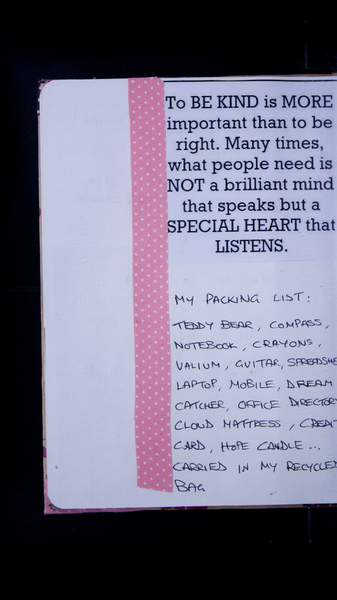 To BE KIND is MORE
important than to be
right. Many times,
what people need is
NOT a brilliant mind
that speaks but a
SPECIAL HEART that
LISTENS.
MY PACKING LIST:
TEDDY BEAR, COMPASS,
NOTEBOOK, CRAYONS,
VALIUM, GUITAR, SPREADSHE
LAPTOP, MOBILE, DREAM
CATCHER, OFFICE DIRECTOR
CLOUD MATTRESS, CREDIT
CARD, HOPE CANDLE...
CARRIED IN MY RECYCLED
BAG